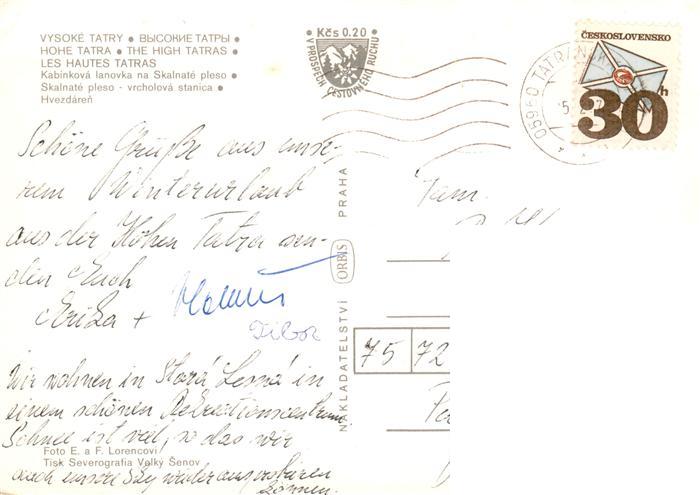 VYSOKÉ TATRY • ВЫСОКИЕ ТАТРЫ •
HOHE TATRA • THE HIGH TATRAS •
LES HAUTES TATRAS •
Kabínková lanovka na Skalnaté pleso •
Skalnaté pleso - vrcholová stanica •
Hvezdáreň
Kčs 0.20
V PROSPĚCH CESTOVNÉHO RUCHU
ČESKOSLOVENSKO
30h
05960 TATRANSKÁ
Schöne Grüße aus unse-
rem Winterurlaub
aus der Hohen Tatra sen-
den Euch
Erika +
Tibor
Wir wohnen in Stará Lesná in
einem schönen Rekreationszentrum
Schnee ist viel, so das wir
auch unsere Sky wieder ausprobieren
können.
Foto E. a F. Lorencovi
Tisk Severografia Velký Šenov
NAKLADATELSTVÍ ORBIS PRAHA
Fam.
75 72